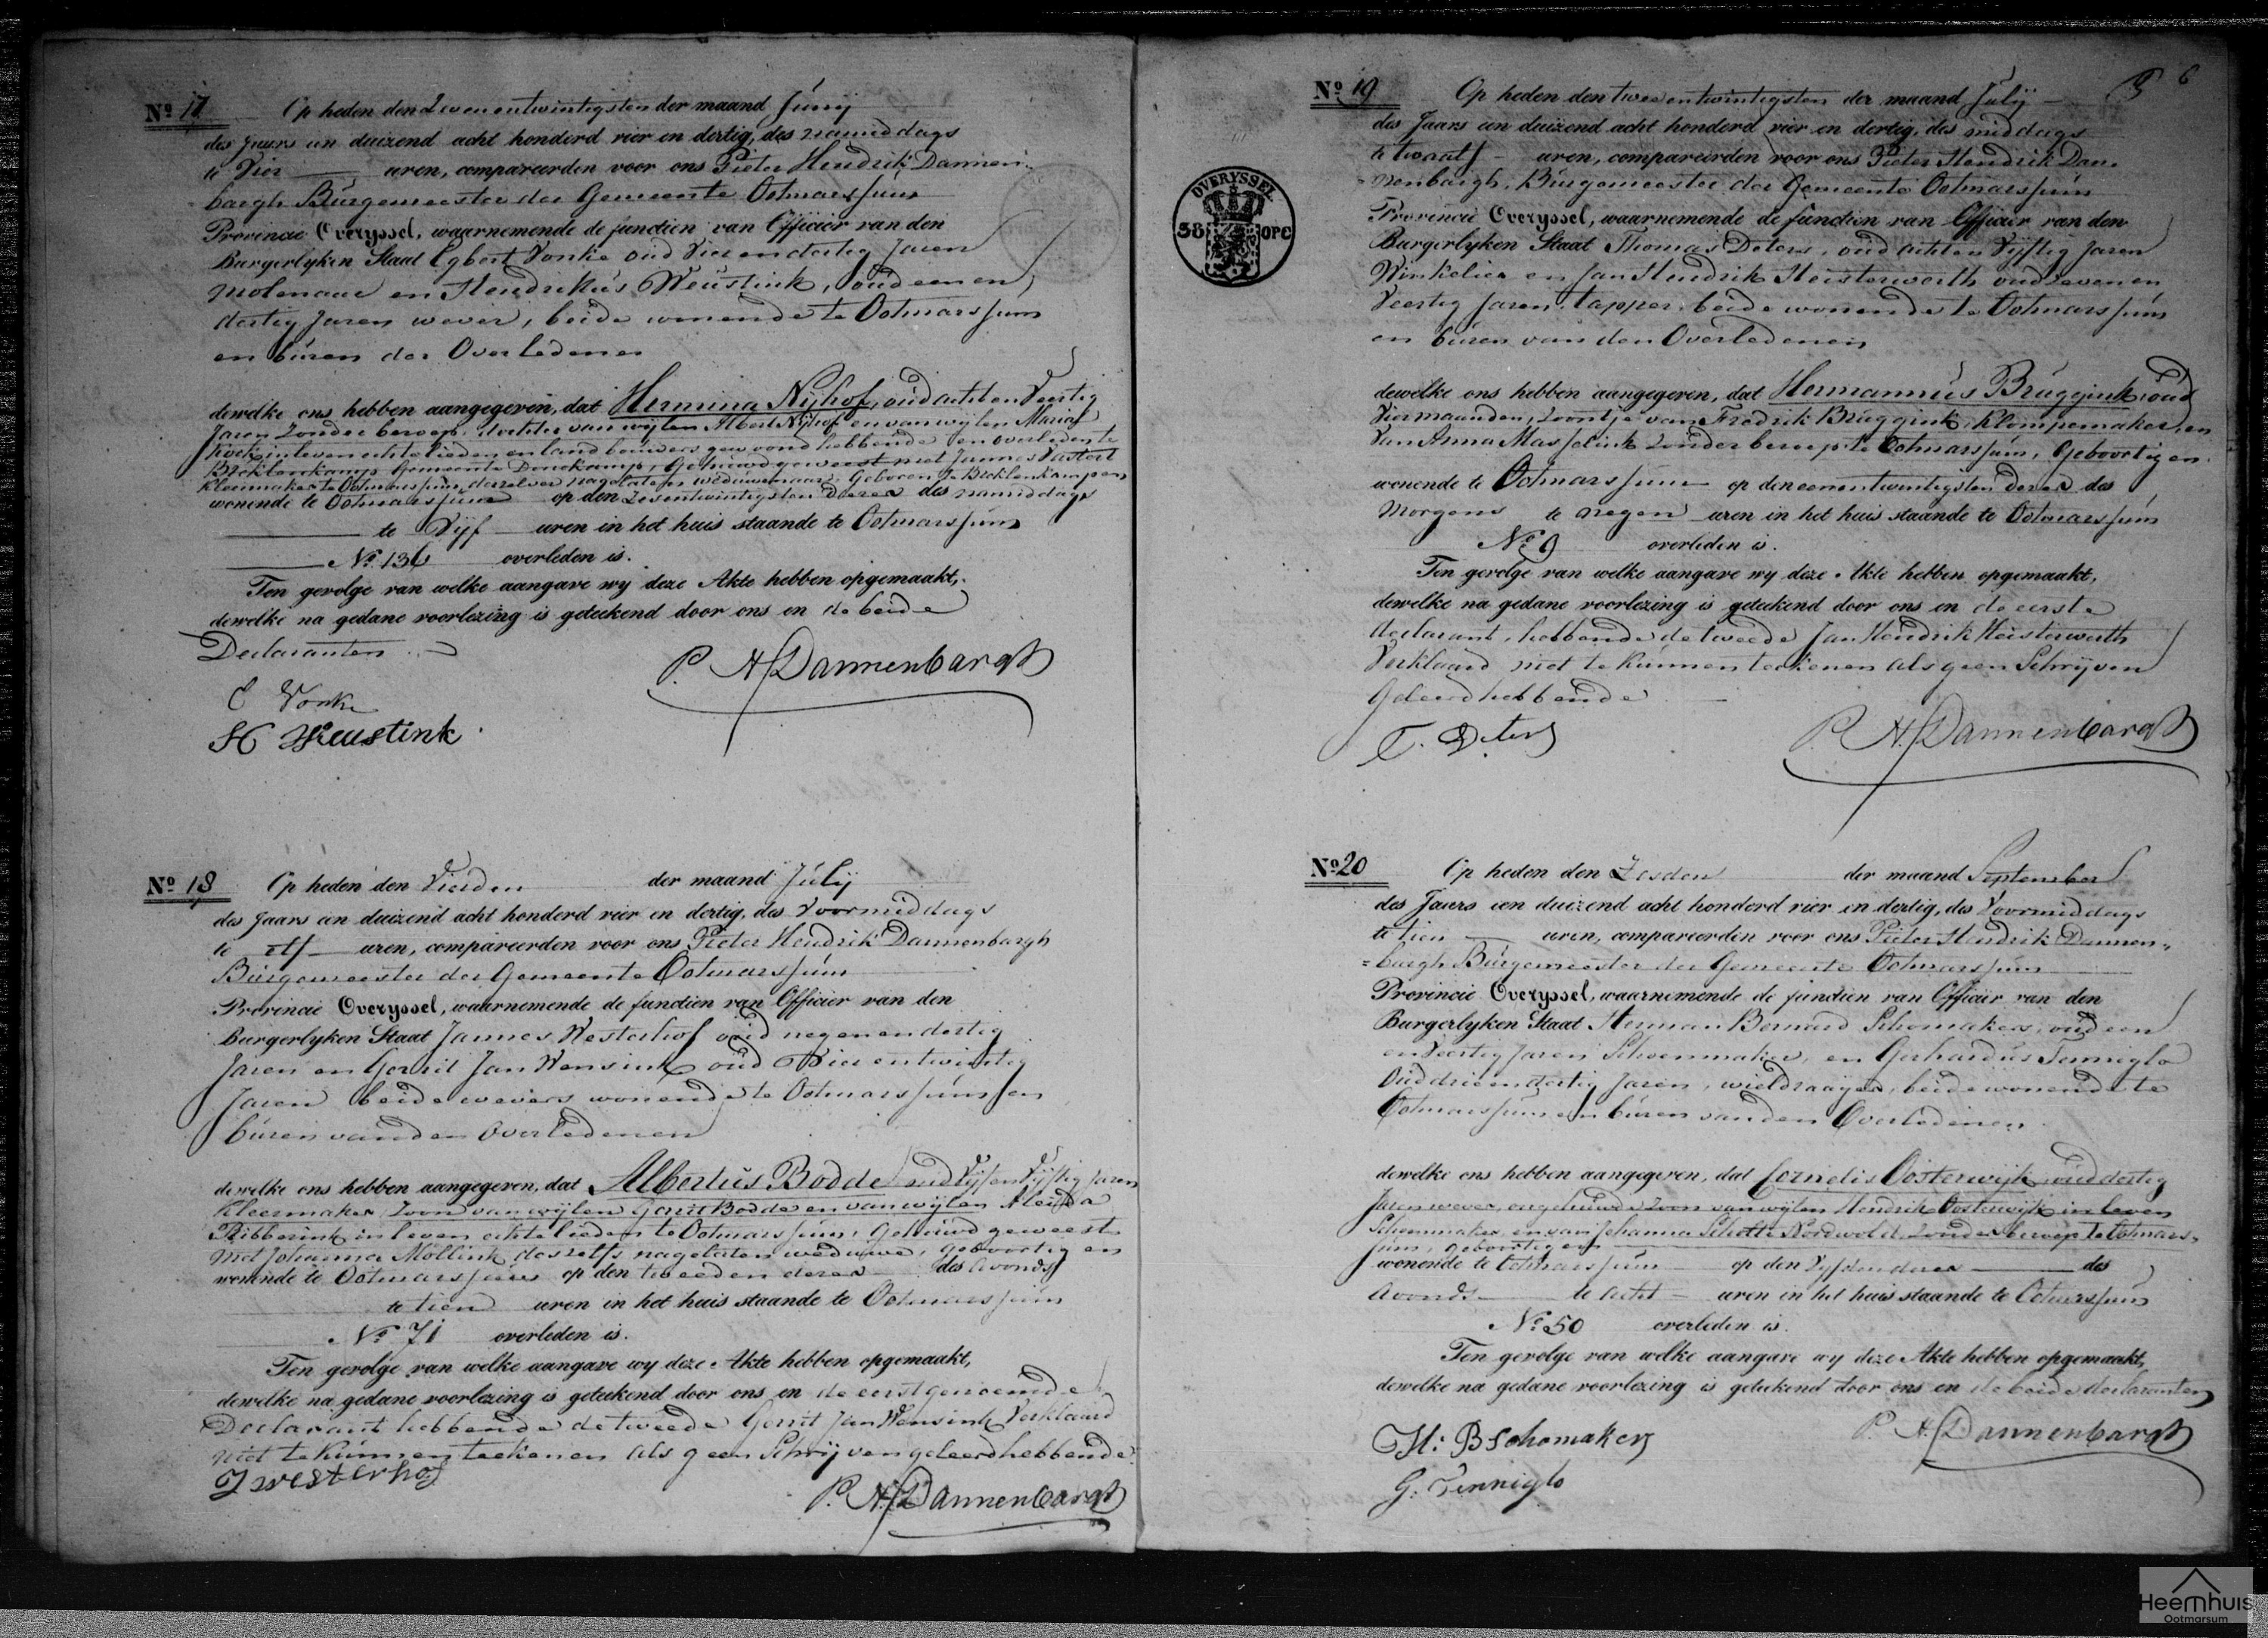 Nº 17 Op heden den Zevenentwintigsten der maand Junij
des Jaars een duizend acht honderd vier en dertig, des namiddags
te Vier uren, compareerden voor ons Pieter Hendrik Dannen-
bargh Burgemeester der Gemeente Ootmarssum
Provincie Overyssel, waarnemende de functien van Officier van den
Burgerlyken Staat Egbert Vonke oud Vierendertig Jaren
molenaar en Hendrikus Weustink, oud eenen
dertig Jaren wever, beide wonende te Ootmarssum
en buren der Overledene
dewelke ons hebben aangegeven, dat Hermina Nijhof, oud achtenVeertig
Jaren Zonder beroep, dochter van wijlen Albert Nijhof en van wijlen Maria
hoek in leven echtelieden en landbouwers gewoond hebbende en overleden te
Brecklenkamp Gemeente Denekamp, Gehuwd geweest met Jannes Vastert
Kleermaker te Ootmarssum, derzelver nagelaten weduwenaar, Geboren te Brecklenkamp en
wonende te Ootmarssum op den Zesentwintigsten dezer des namiddags
te Vijf uren in het huis staande te Ootmarssum
Nº 136 overleden is.
Ten gevolge van welke aangave wy deze Akte hebben opgemaakt,
dewelke na gedane voorlezing is geteekend door ons en de beide
Declaranten
P. H. Dannenbargh
E Vonke
H Weustink
Nº 18 Op heden den Vierden der maand Julij
des Jaars een duizend acht honderd vier en dertig, des Voormiddags
te elf uren, compareerden voor ons Pieter Hendrik Dannenbargh
Burgemeester der Gemeente Ootmarssum
Provincie Overyssel, waarnemende de functien van Officier van den
Burgerlyken Staat Jannes Westerhof oud negenendertig
Jaren en Gerrit Jan Wensink oud Vierentwintig
Jaren beide wevers wonende te Ootmarssum en
buren van den Overledenen
dewelke ons hebben aangegeven, dat Albertus Bodde oud VijfenVijftig Jaren
Kleermaker Zoon van wijlen Gerrit Bodde en van wijlen Aleida
Ribberink in leven echtelieden te Ootmarssum, Gehuwd geweest
met Johanna Mollink deszelfs nagelaten weduwe, geboortig en
wonende te Ootmarssum op den tweeden dezer des Avonds
te tien uren in het huis staande te Ootmarssum
Nº 71 overleden is.
Ten gevolge van welke aangave wy deze Akte hebben opgemaakt,
dewelke na gedane voorlezing is geteekend door ons en de eerstgenoemde
Declarant hebbende de tweede Gerrit Jan Wensink Verklaard
niet te kunnen teekenen als geen Schrijven geleerd hebbende
J westerhof
P. H. Dannenbargh
6
Nº 19 Op heden den tweeentwintigsten der maand Julij
des Jaars een duizend acht honderd vier en dertig, des middags
te twaalf uren, compareerden voor ons Pieter Hendrik Dan-
nenbargh, Burgemeester der Gemeente Ootmarssum
Provincie Overyssel, waarnemende de functien van Officier van den
Burgerlyken Staat Thomas Deters, oud achten Vijftig Jaren
Winkelier en Jan Hendrik Heisterwerth oud zevenen
Veertig Jaren, tapper, beide wonende te Ootmarssum
en buren van den Overledenen
OVERYSSEL
38 OPC
dewelke ons hebben aangegeven, dat Hermannus Bruggink oud
Vier maanden, Zoontje van Fredrik Bruggink, Klompemaker, en
van Anna Masselink zonder beroep te Ootmarssum, Geboortig en
wonende te Ootmarssum op den eenentwintigsten dezer des
Morgens te negen uren in het huis staande te Ootmarssum
Nº 9 overleden is.
Ten gevolge van welke aangave wy deze Akte hebben opgemaakt,
dewelke na gedane voorlezing is geteekend door ons en de eerste
declarant, hebbende de tweede Jan Hendrik Heisterwerth
Verklaard niet te Kunnen teekenen als geen Schrijven
Geleerd hebbende
T. Deters
P. H. Dannenbargh
Nº 20 Op heden den Zesden der maand September
des Jaars een duizend acht honderd vier en dertig, des Voormiddags
te tien uren, compareerden voor ons Pieter Hendrik Dannen-
bargh Burgemeester der Gemeente Ootmarssum
Provincie Overyssel, waarnemende de functien van Officier van den
Burgerlyken Staat Herman Bernard Schomaker, oud een
en Veertig Jaren Schoenmaker, en Gerhardus Tenniglo
Oud drieendertig Jaren, wieldraaijer, beide wonende te
Ootmarssum en buren van den Overledenen
dewelke ons hebben aangegeven, dat Cornelis Oosterwijk oud dertig
Jaren wever, ongehuwd Zoon van wijlen Hendrik Oosterwijk in leven
Schoenmaker, en van Johanna Scholte Nordwold, zonder beroep te Ootmars-
sum, geboortig en
wonende te Ootmarssum op den Vijfden dezer des
Avonds te acht uren in het huis staande te Ootmarssum
Nº 50 overleden is.
Ten gevolge van welke aangave wy deze Akte hebben opgemaakt,
dewelke na gedane voorlezing is geteekend door ons en de beide declaranten
H: B Schomaker
P. H. Dannenbargh
G. Tenniglo
Heemhuis
Ootmarsum